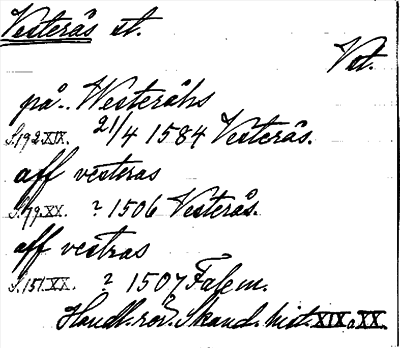 Vesterås st.
Vst.
på.. Westeråhs
S.192.XIX. 21/4 1584 Vesterås.
aff vesteras
S.79.XX. ? 1506 Vesterås.
aff vestras
S.151.XX. ? 1507 Falem.
Handl. rör. Skand. hist. XIX o XX.